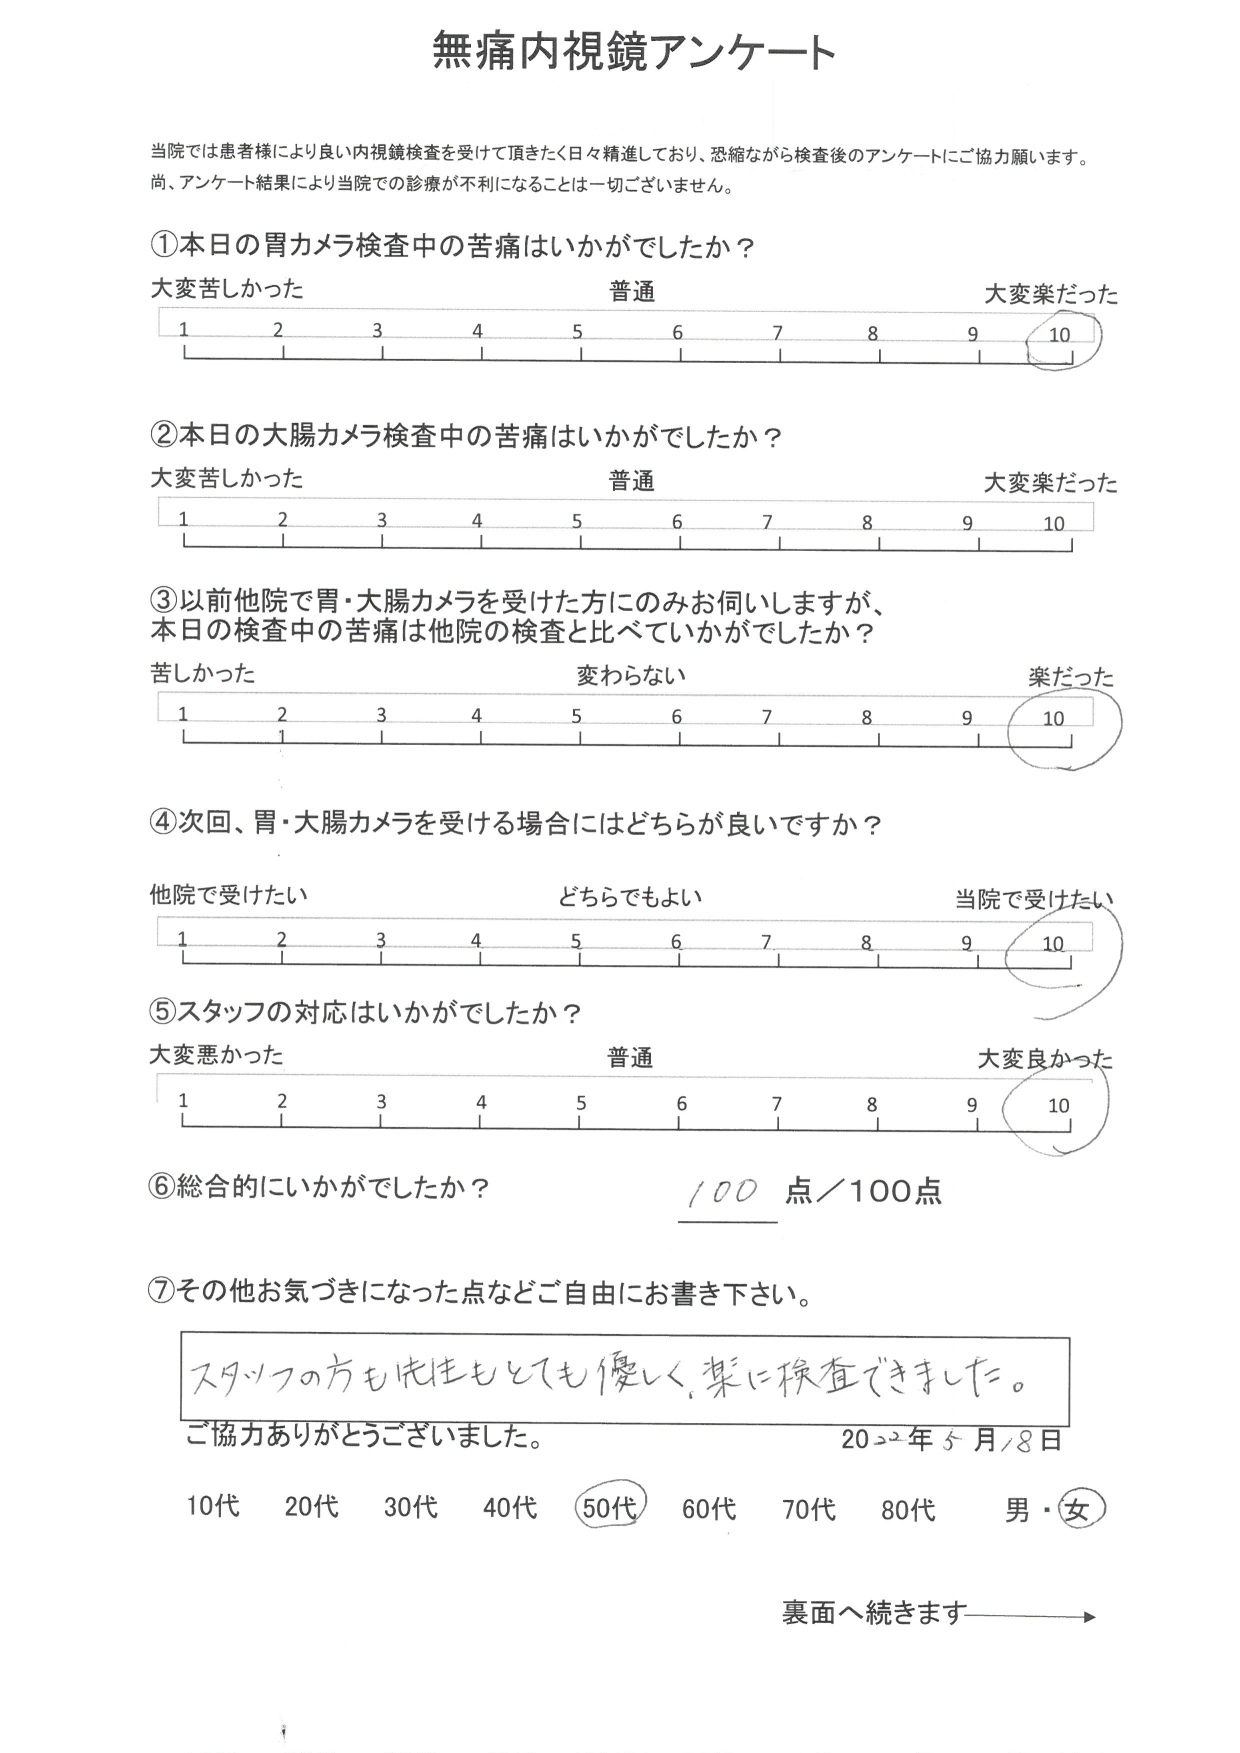 無痛内視鏡アンケート
当院では患者様により良い内視鏡検査を受けて頂きたく日々精進しており、恐縮ながら検査後のアンケートにご協力願います。
尚、アンケート結果により当院での診療が不利になることは一切ございません。
①本日の胃カメラ検査中の苦痛はいかがでしたか？
大変苦しかった 普通 大変楽だった
1 2 3 4 5 6 7 8 9 10
②本日の大腸カメラ検査中の苦痛はいかがでしたか？
大変苦しかった 普通 大変楽だった
1 2 3 4 5 6 7 8 9 10
③以前他院で胃・大腸カメラを受けた方にのみお伺いしますが、
本日の検査中の苦痛は他院の検査と比べていかがでしたか？
苦しかった 変わらない 楽だった
1 2 3 4 5 6 7 8 9 10
④次回、胃・大腸カメラを受ける場合にはどちらが良いですか？
他院で受けたい どちらでもよい 当院で受けたい
1 2 3 4 5 6 7 8 9 10
⑤スタッフの対応はいかがでしたか？
大変悪かった 普通 大変良かった
1 2 3 4 5 6 7 8 9 10
⑥総合的にいかがでしたか？ 100 点／100点
⑦その他お気づきになった点などご自由にお書き下さい。
スタッフの方も先生もとても優しく、楽に検査できました。
ご協力ありがとうございました。 2022年 5 月 18日
10代 20代 30代 40代 50代 60代 70代 80代 男・女
裏面へ続きます